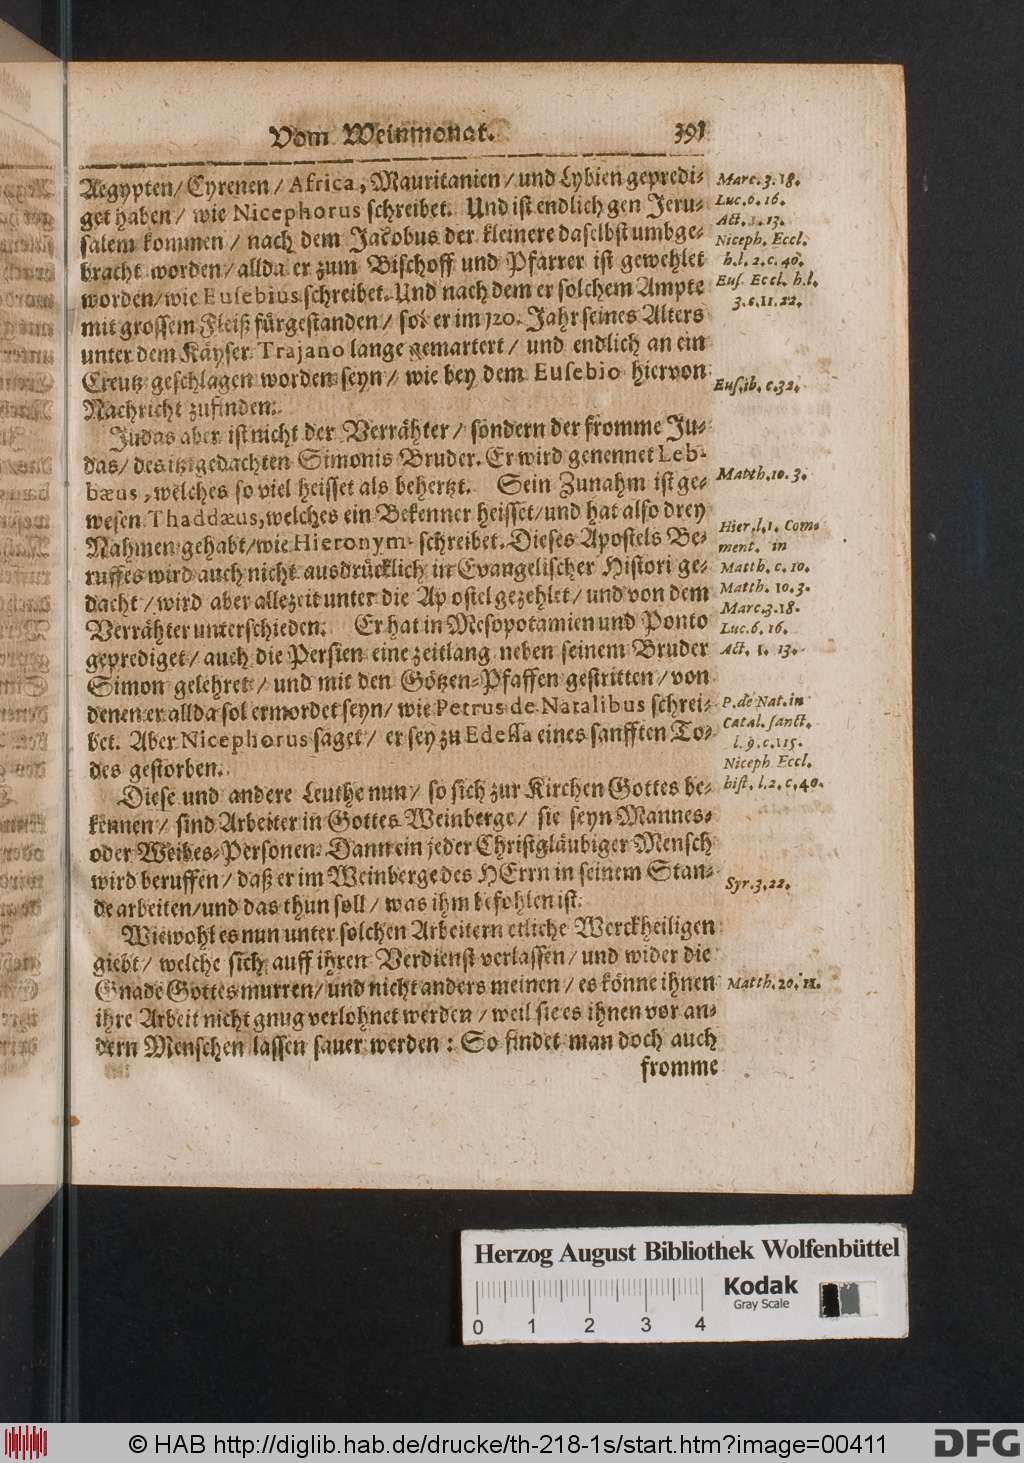 Vom Weinmonat. 391
Aegypten/ Cyrenen/ Africa, Mauritanien/ und Lybien gepredi-
get haben/ wie Nicephorus schreibet. Und ist endlich gen Jeru-
salem kommen/ nach dem Jacobus der kleinere daselbst umbge-
bracht worden/ allda er zum Bischoff und Pfarrer ist gewehlet
worden/ wie Eusebius schreibet. Und nach dem er solchem Ampte
mit grossem Fleiß fürgestanden/ sol er im 120. Jahr seines Alters
unter dem Käyser Trajano lange gemartert/ und endlich an ein
Creutz geschlagen worden seyn/ wie bey dem Eusebio hiervon
Nachricht zufinden.
Judas aber ist nicht der Verrähter/ sondern der fromme Ju-
das/ des itzt gedachten Simonis Bruder. Er wird genennet Leb-
bæus, welches so viel heisset als behertzt. Sein Zunahm ist ge-
wesen Thaddæus, welches ein Bekenner heisset/ und hat also drey
Nahmen gehabt/ wie Hieronym. schreibet. Dieses Apostels Be-
ruffes wird auch nicht ausdrücklich in Evangelischer Histori ge-
dacht/ wird aber allezeit unter die Apostel gezehlet/ und von dem
Verrähter unterschieden. Er hat in Mesopotamien und Ponto
geprediget/ auch die Persien eine zeitlang neben seinem Bruder
Simon gelehret/ und mit den Götzen-Pfaffen gestritten/ von
denen er allda sol ermordet seyn/ wie Petrus de Natalibus schrei-
bet. Aber Nicephorus saget/ er sey zu Edessa eines sanfften To-
des gestorben.
Diese und andere Leuthe nun/ so sich zur Kirchen Gottes be-
kennen/ sind Arbeiter in Gottes Weinberge/ sie seyn Mannes-
oder Weibes-Personen. Dann ein jeder Christgläubiger Mensch
wird beruffen/ daß er im Weinberge des HErrn in seinem Stan-
de arbeiten/ und das thun soll/ was ihm befohlen ist.
Wiewohl es nun unter solchen Arbeitern etliche Werckheiligen
giebt/ welche sich auff ihren Verdienst verlassen/ und wider die
Gnade Gottes murren/ und nicht anders meinen/ es könne ihnen
ihre Arbeit nicht gnug verlohnet werden/ weil sie es ihnen vor an-
dern Menschen lassen sauer werden: So findet man doch auch
fromme
Marc. 3. 18.
Luc. 6. 16.
Act. 1. 13.
Niceph. Eccl.
h. l. 2. c. 40.
Eus. Eccl. h. l.
3. c. 11. 22.
Eus. ib. c. 32.
Matth. 10. 3.
Hier. l. 1. Com-
ment. in
Matth. c. 10.
Matth. 10. 3.
Marc. 3. 18.
Luc. 6. 16.
Act. 1. 13.
P. de Nat. in
Catal. sanct.
l. 9. c. 115.
Niceph. Eccl.
hist. l. 2. c. 40.
Syr. 3, 22.
Matth. 20. 12.
Herzog August Bibliothek Wolfenbüttel
Kodak
Gray Scale
0 1 2 3 4
© HAB http://diglib.hab.de/drucke/th-218-1s/start.htm?image=00411
DFG